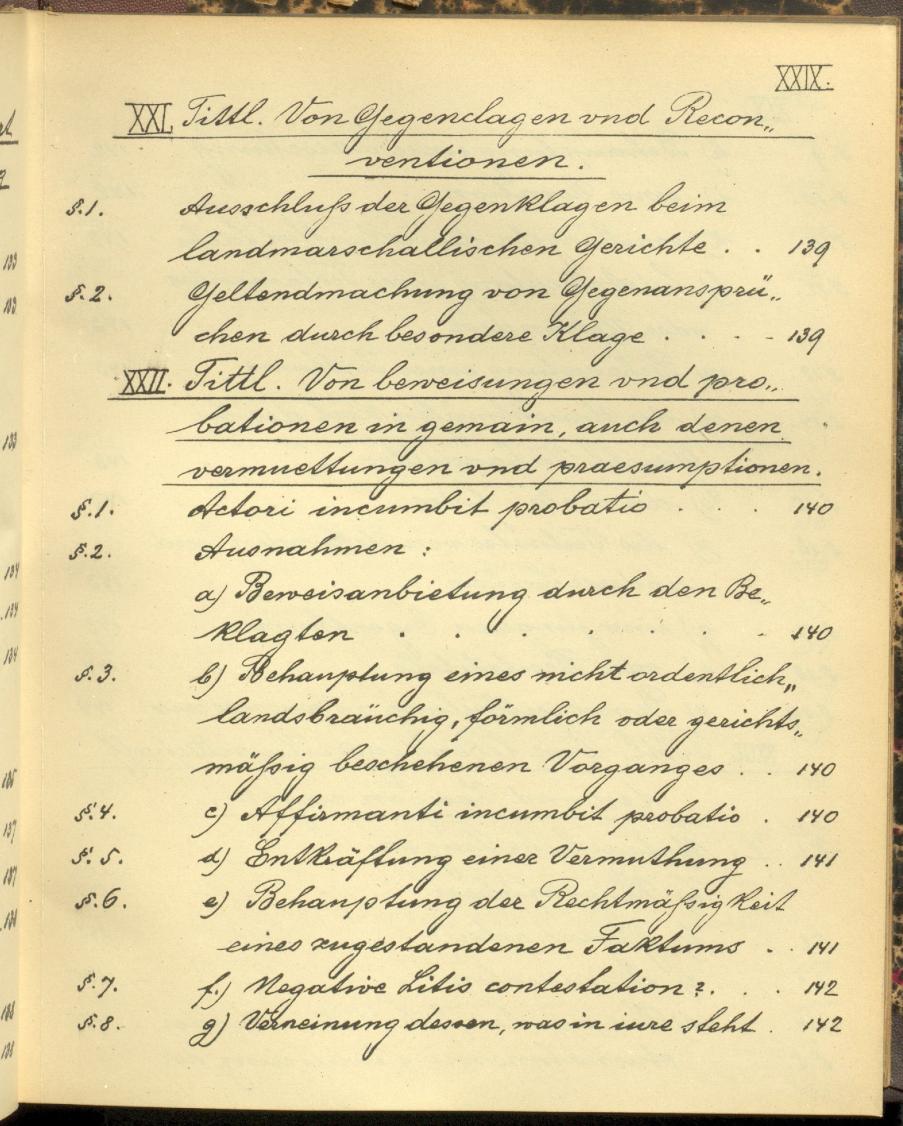 XXIX.
XXI. Tittl. Von Gegenclagen vnd Recon„
ventionen.
§.1. Ausschluß der Gegenklagen beim
landmarschallischen Gerichte . . 139
§.2. Geltendmachung von Gegenansprü„
chen durch besondere Klage . . . . 139
XXII. Tittl. Von beweisungen vnd pro„
bationen in gemain, auch denen
vermuettungen vnd praesumptionen.
§.1. Actori incumbit probatio . . . 140
§.2. Ausnahmen :
a) Beweisanbietung durch den Be„
klagten . . . . . . . 140
§.3. b) Behauptung eines nicht ordentlich„
landsbräuchig, förmlich oder gerichts„
mäßig beschehenen Vorganges . . 140
§.4. c) Affirmanti incumbit probatio . 140
§.5. d) Entkräftung einer Vermuthung . . 141
§.6. e) Behauptung der Rechtmäßigkeit
eines zugestandenen Faktums . . 141
§.7. f.) Negative Litis contestation ?. . . 142
§.8. g) Verneinung dessen, was in iure steht . 142
133
133
134
134
134
137